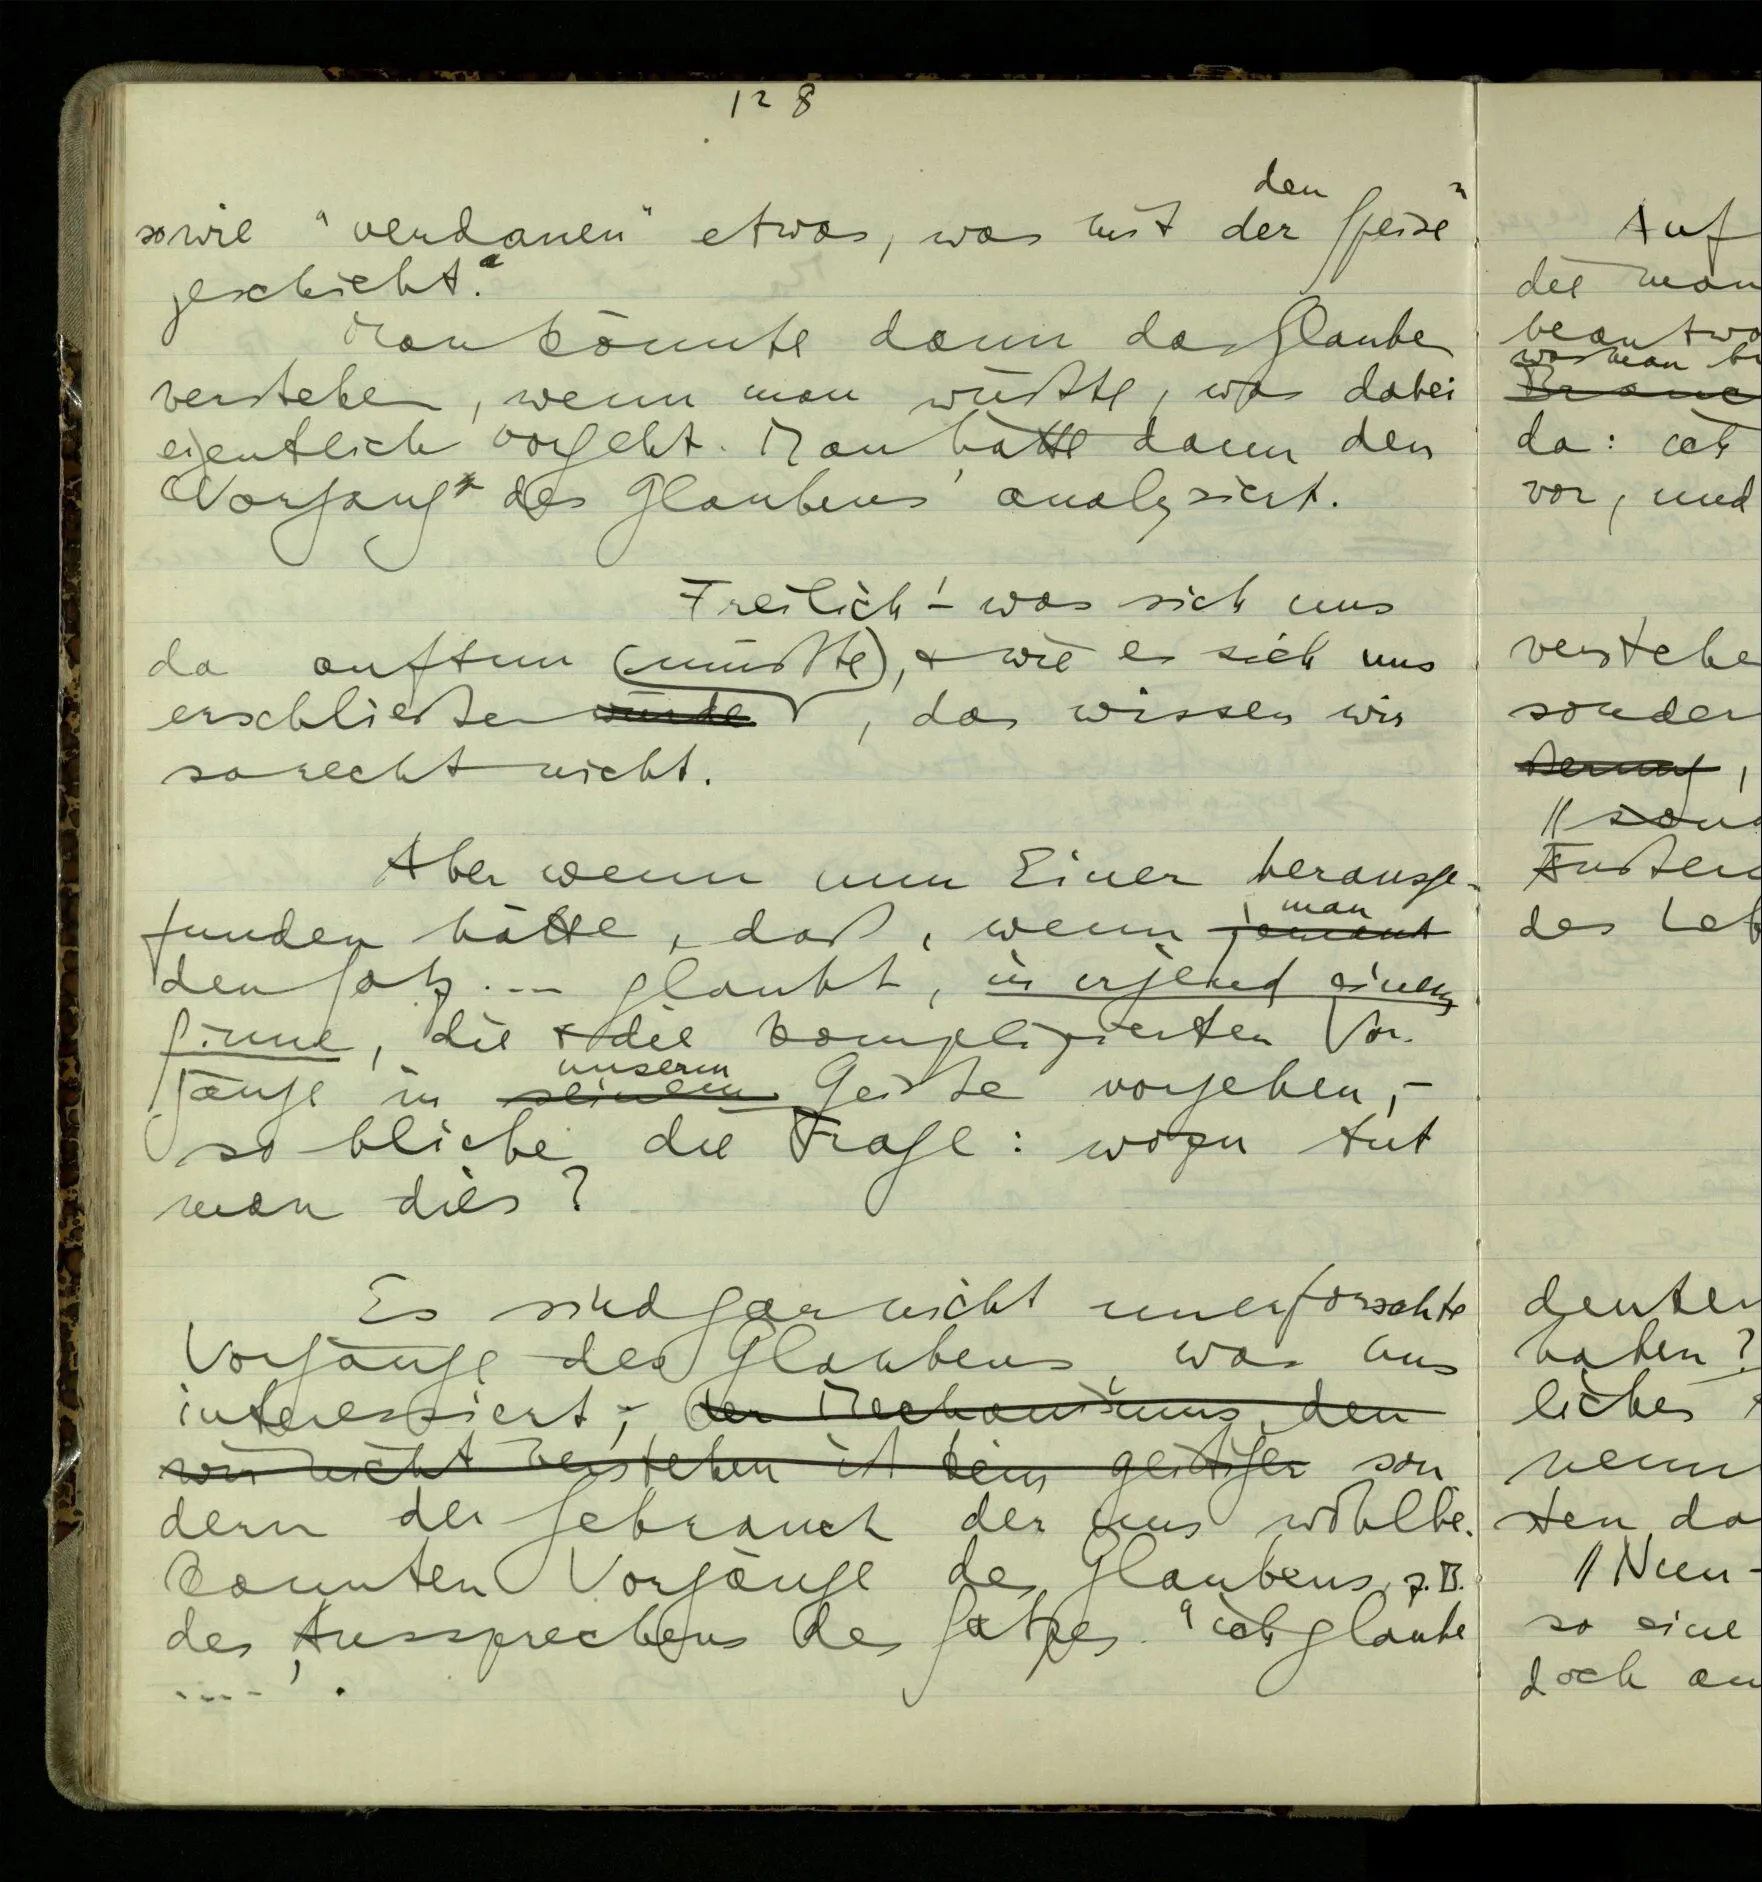 128
den n
sowie "verdauen" etwas, was mit der Speise
geschieht."
Man könnte dann das Glauben
verstehen, wenn man wüßte, was dabei
eigentlich vorgeht. Man hätte dann den
Vorgang des Glaubens analysiert.
Freilich! – was sich uns
da auftun (müßte), & wie es sich uns
erschließen würde, das wissen wir
so recht nicht.
Aber wenn nun Einer herausge-
funden hätte, daß, wenn jemand man
den Satz ... glaubt, in irgend einem
Sinne, die & die komplizierten Vor-
gänge in seinem unserm Geiste vorgehen, –
so bliebe die Frage: wozu tut
man dies?
Es sind gar nicht unerforschte
Vorgänge des Glaubens was uns
interessiert; – der Mechanismus, den
wir nicht verstehen ist kein geistiger son
dern der Gebrauch der uns wohlbe-
kannten Vorgänge des Glaubens, z.B.
des Aussprechens des Satzes "ich glaube
.... .
Auf
die man
was man
da: ich
vor, und
verstehe
sonder
des Leb
deuten
haben?
liches
wenn
sten da
// Nun –
so eine
doch an